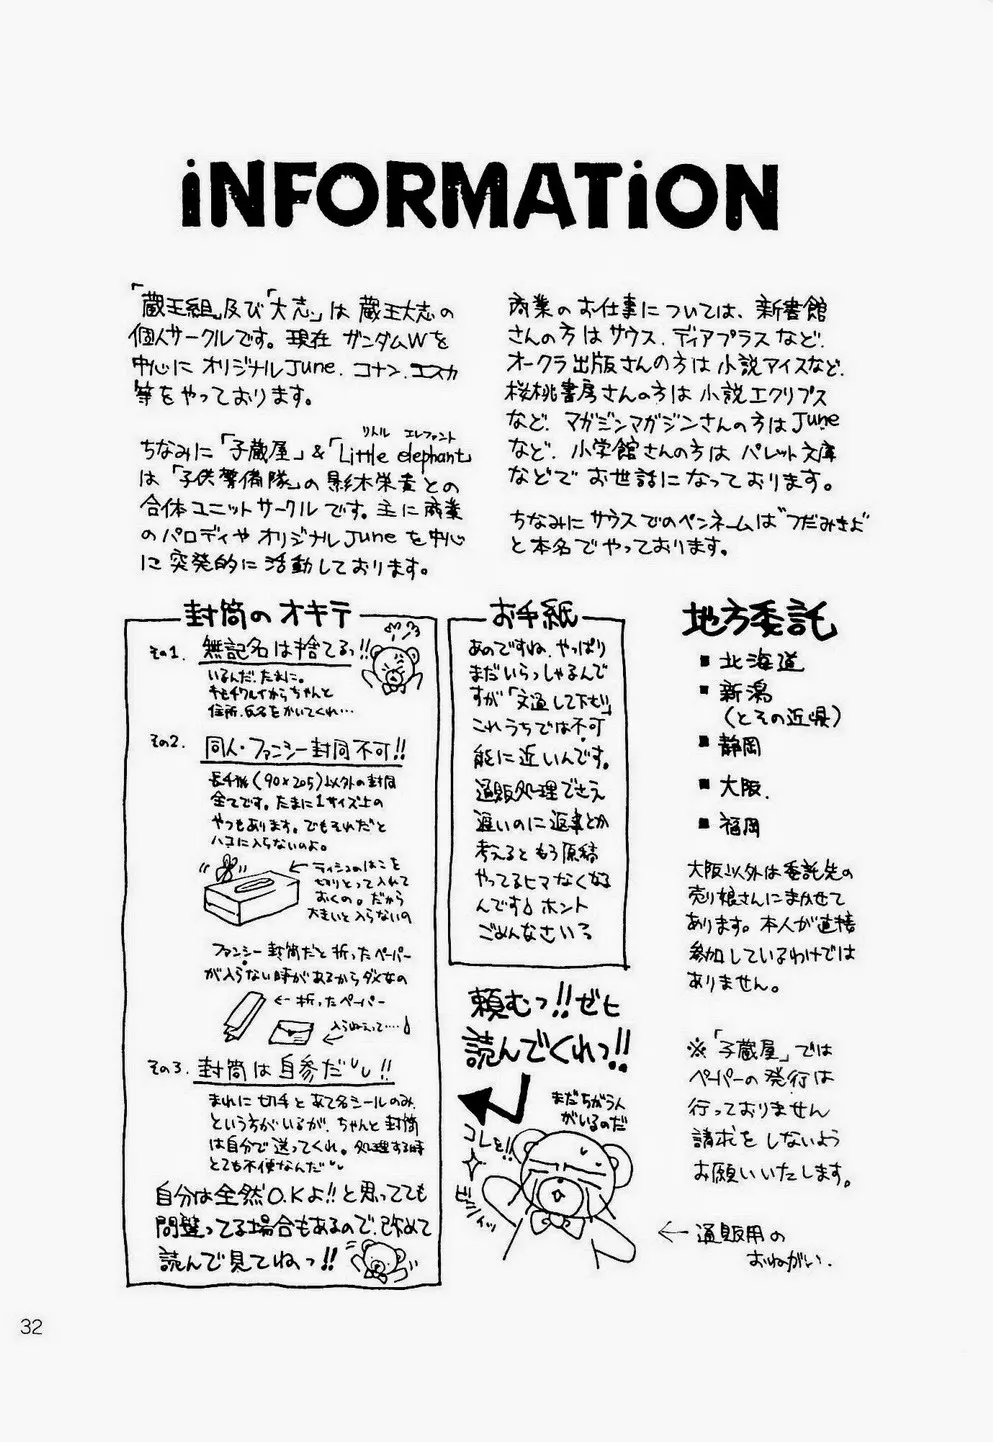 iNFORMATiON
「蔵王組」及び「大志」は 蔵王大志の
個人サークルです。現在 ガンダムWを
中心に オリジナルJune. コナン. エスカ
等をやっております。
リトル エレファント
ちなみに「子蔵屋」&「Little elephant」
は「子供警備隊」の影木栄貴との
合体ユニットサークルです。主に商業
のパロディや オリジナルJuneを中心
に 突発的に活動しております。
商業のお仕事については、新書館
さんの方はサウス. ディアプラスなど.
オークラ出版さんの方は小説アイスなど.
桜桃書房さんの方は小説エクリプス
など. マガジンマガジンさんの方はJune
など. 小学館さんの方は パレット文庫
などで お世話になっております。
ちなみにサウスでのペンネームは"つだみきよ"
と本名でやっております。
封筒のオキテ
その1. 無記名は捨てるっ!!
いるんだ.たまに。
キモチワルイからちゃんと
住所.氏名をかいてくれ…
その2. 同人・ファンシー封筒不可!!
長4版(90×205)以外の封筒
全てです。たまに1サイズ上の
やつもあります。でもそれだと
ハコに入らないのよ。
←ティシュのはこを
切りとって入れて
おくの。だから
大きいと入らないの
ファンシー封筒だと折ったペーパー
が入らない時があるからダメなの
←折ったペーパー
入らねえって…
その3. 封筒は自参だ!!
まれに切手とあて名シールのみ.
という方がいるが、ちゃんと封筒
は自分で送ってくれ。処理する時
とても不便なんだ
自分は全然O.Kよ!!と思ってても
間違ってる場合もあるので、改めて
読んで見てねっ!!
お手紙
あのですね、やっぱり
まだいらっしゃるんで
すが「文通して下さい」
これうちでは不可
能に近いんです。
通販処理でさえ
遅いのに返事とか
考えるともう原稿
やってるヒマなくなる
んです ホント
ごめんなさい
頼むっ!!ゼヒ
読んでくれっ!!
まだちがう人
がいるのだ
コレを!!
地方委託
■北海道
■新潟
(とその近県)
■静岡
■大阪.
■福岡
大阪以外は委託先の
売り娘さんにまかせて
あります。本人が直接
参加しているわけでは
ありません。
※「子蔵屋」では
ペーパーの発行は
行っておりません
請求をしないよう
お願いいたします。
←通販用の
おねがい.
32